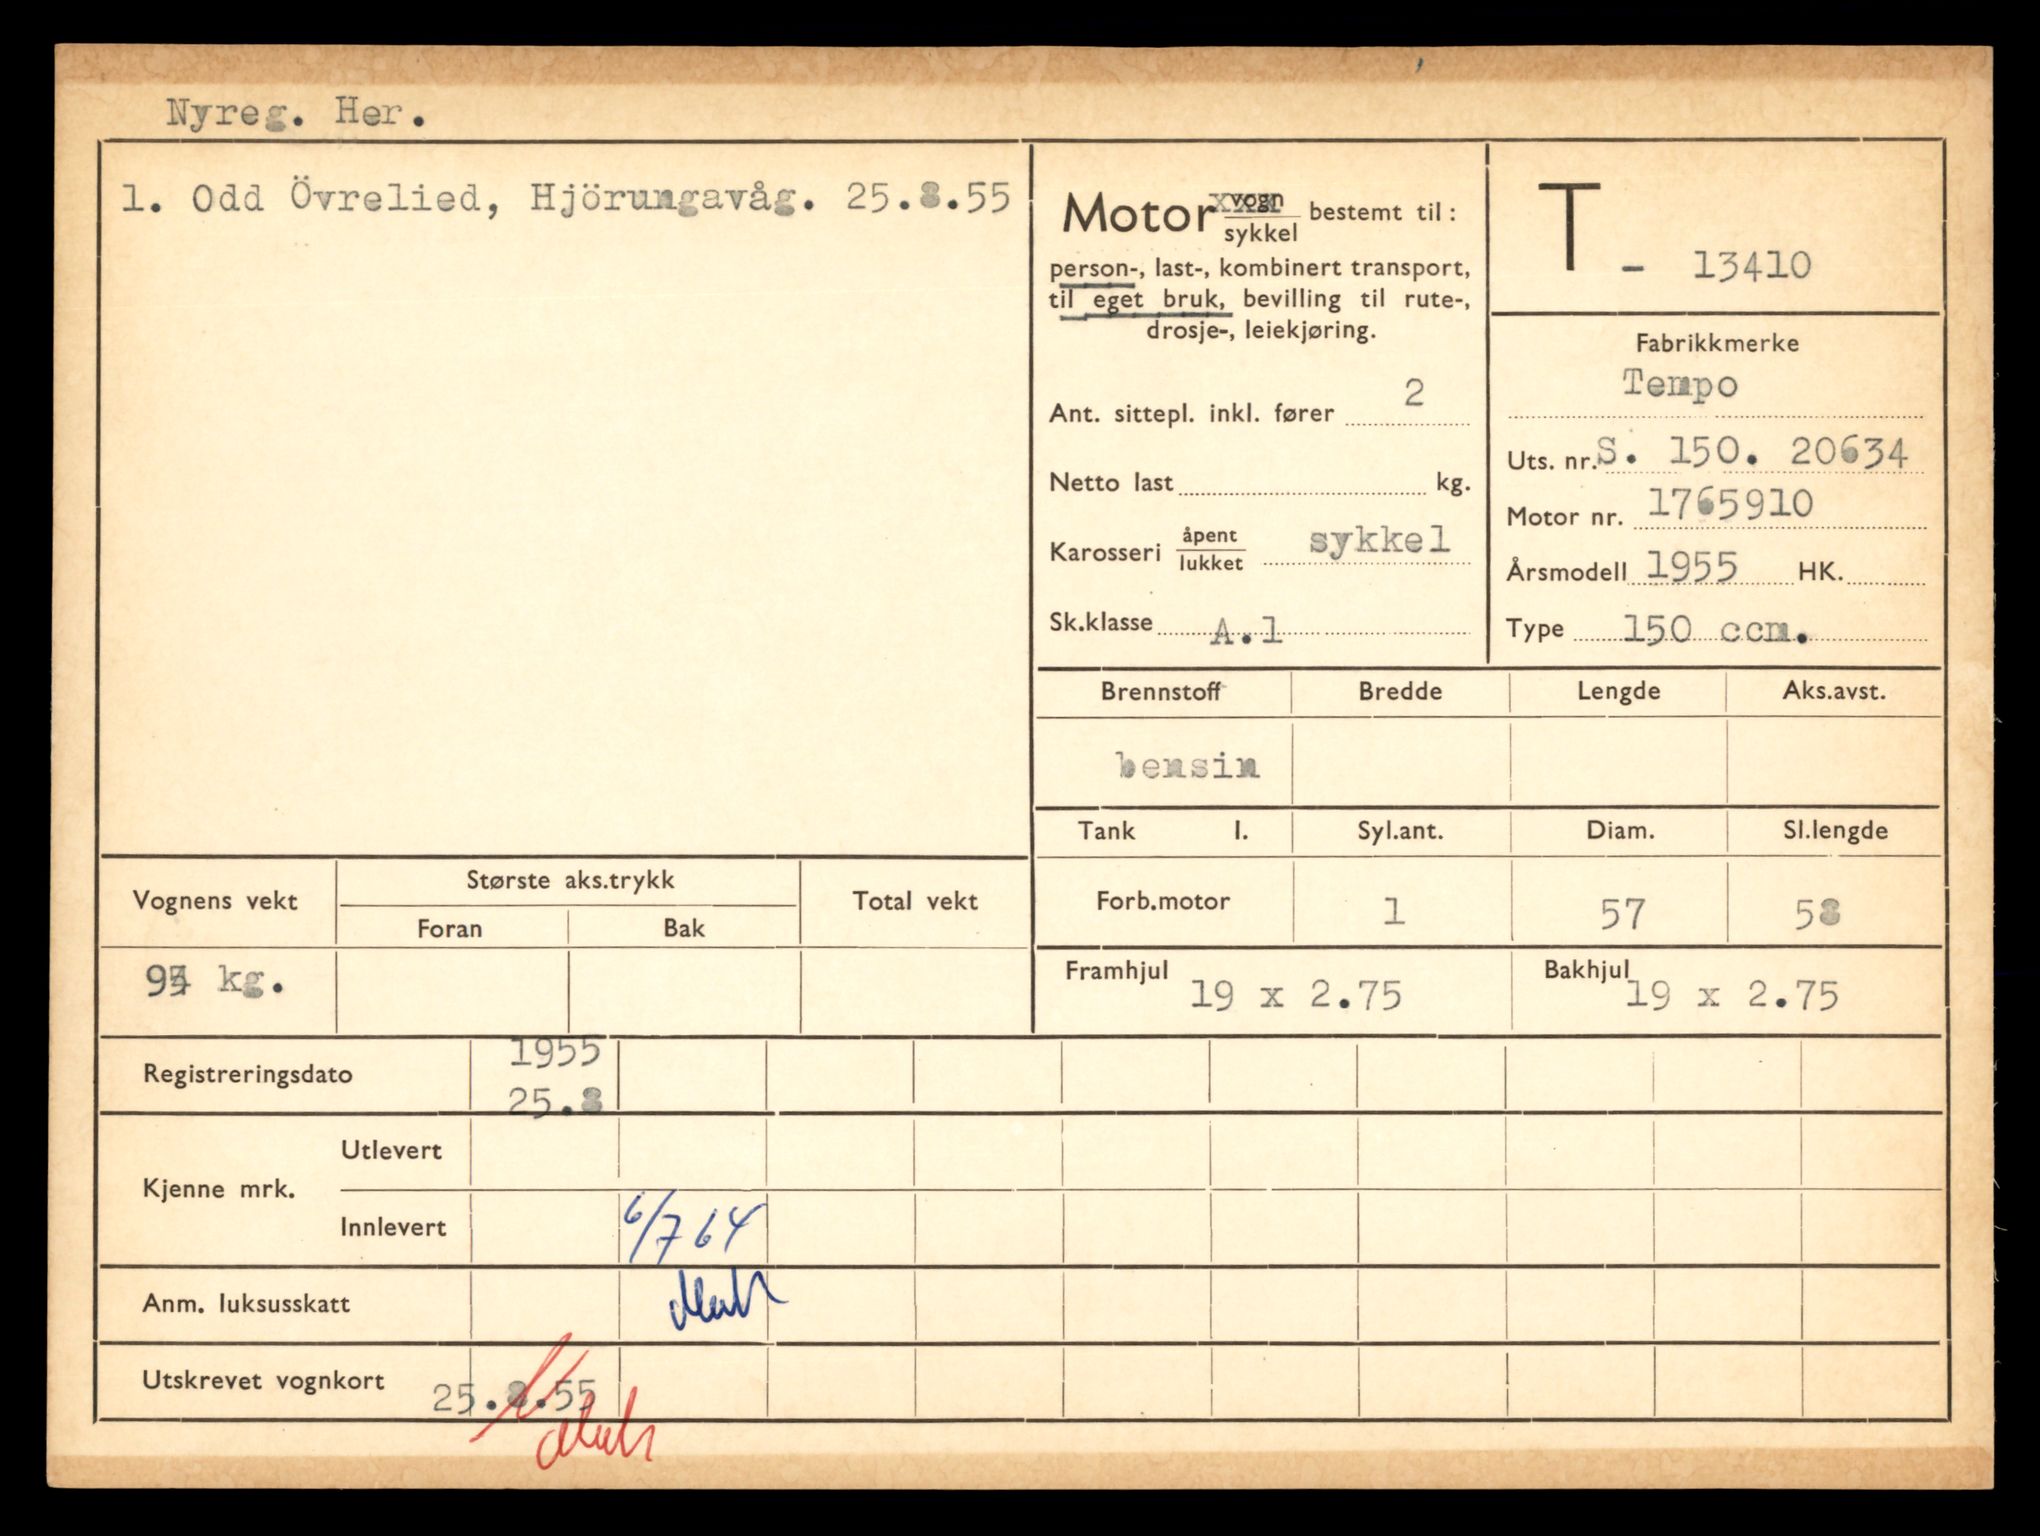 Nyreg. Her.
1. Odd Övrelied, Hjörungavåg. 25.8.55
Motor vogn sykkel bestemt til:
person-, last-, kombinert transport,
til eget bruk, bevilling til rute-,
drosje-, leiekjøring.
Ant. sittepl. inkl. fører 2
Netto last kg.
Karosseri åpent lukket sykkel
Sk.klasse A.1
T - 13410
Fabrikkmerke
Tempo
Uts. nr. S. 150. 20634
Motor nr. 1765910
Årsmodell 1955 HK.
Type 150 ccm.
Brennstoff Bredde Lengde Aks.avst.
bensin
Tank l. Syl.ant. Diam. Sl.lengde
Forb.motor 1 57 58
Framhjul 19 x 2.75 Bakhjul 19 x 2.75
Vognens vekt Største aks.trykk Total vekt
Foran Bak
kg.
Registreringsdato 1955
25.8
Kjenne mrk. Utlevert
Innlevert 6/7 64
Anm. luksusskatt
Utskrevet vognkort 25.8.55